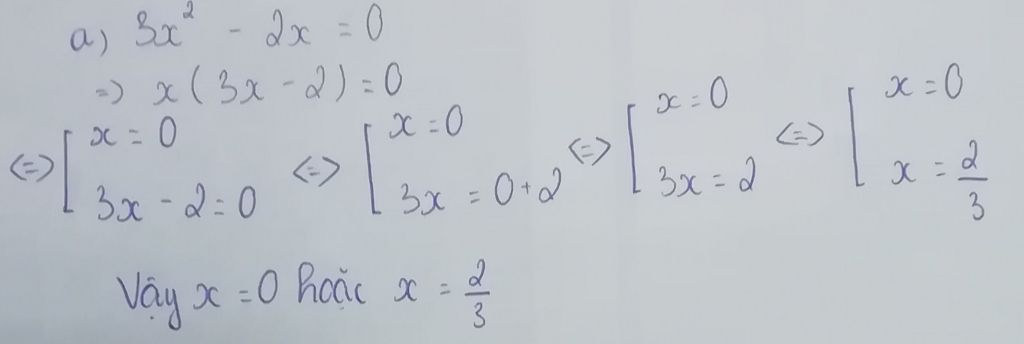 a) 3x² - 2x = 0
=> x(3x - 2) = 0
<=> [ x = 0 <=> [ x = 0 <=> [ x = 0 <=> [ x = 0
3x - 2 = 0 3x = 0 + 2 3x = 2 x = 2/3
Vậy x = 0 hoặc x = 2/3